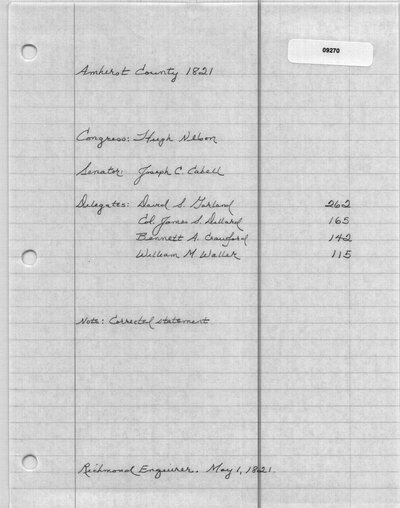 09270
Amherst County 1821
Congress: Hugh Nelson
Senator: Joseph C. Cabell
Delegates: David S. Garland 262
Col. James S. Dillard 165
Bennett A. Crawford 142
William M. Waller 115
Note: Corrected statement
Richmond Enquirer. May 1, 1821.